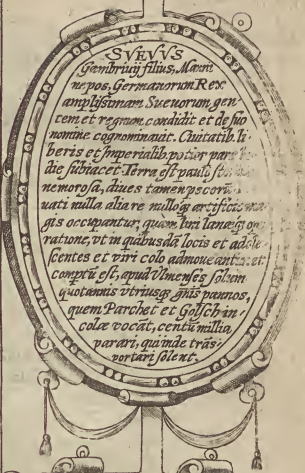 SVEVVS
Gambriuij filius, Manni
nepos, Germanorum Rex
amplissimam Sueuorum gen-
tem et regnum condidit et de suo
nomine cognominauit. Ciuitatib. li-
beris et Imperialib. potior pars
die subiacet. Terra est paulo
nemorosa, diues tamen pecoris
uati nulla alia re nullóq; artificio ma
gis occupantur, quam lini lanæq; op
ratione, vt in quibusdā locis et adole
scentes et viri colo admoueantur. et
comptū est, apud Vlmenses solum
quotannis vtriusq; gñis pannos,
quem Parchet et Golsch in-
colæ vocāt, centū millia,
parari, qui inde trās-
portari solent.